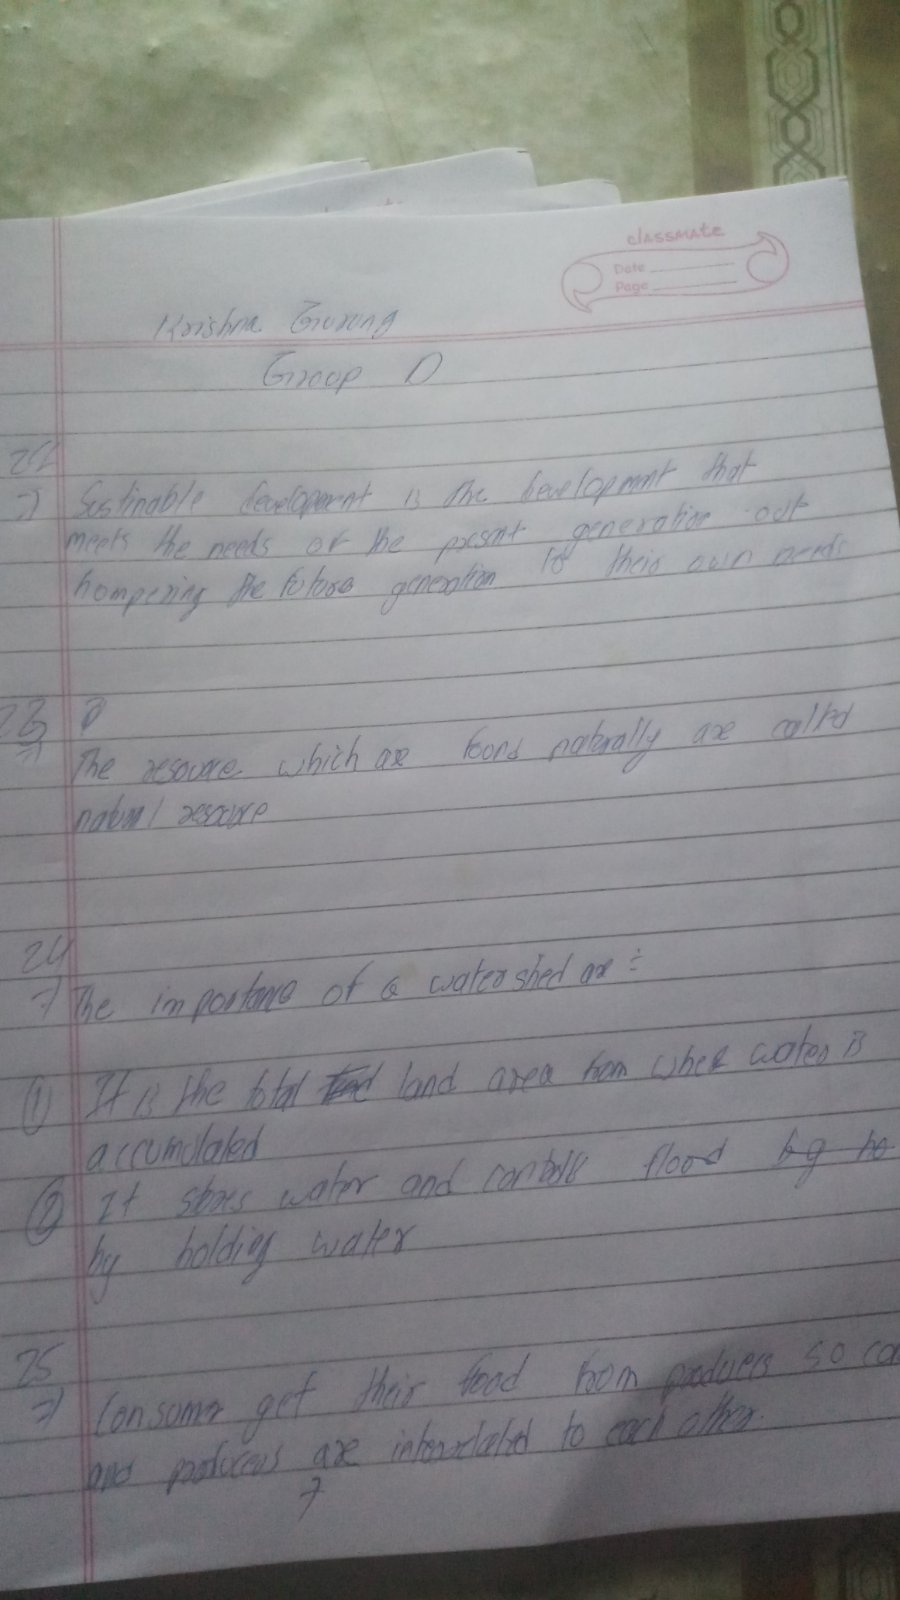 classmate
Date
Page
Krishna Gurung
Group D
22
Sustinable development is the development that
meets the needs of the present generation out
hampering the future generation to their own needs
23
The resource which are found naturally are called
natural resource
24
The importance of a watershed are :
① It is the total land area from wher water is
accumulated
② It stores water and controls flood
by holding water
25
Consumer get their food from producers so
and producers are interrelated to each other.